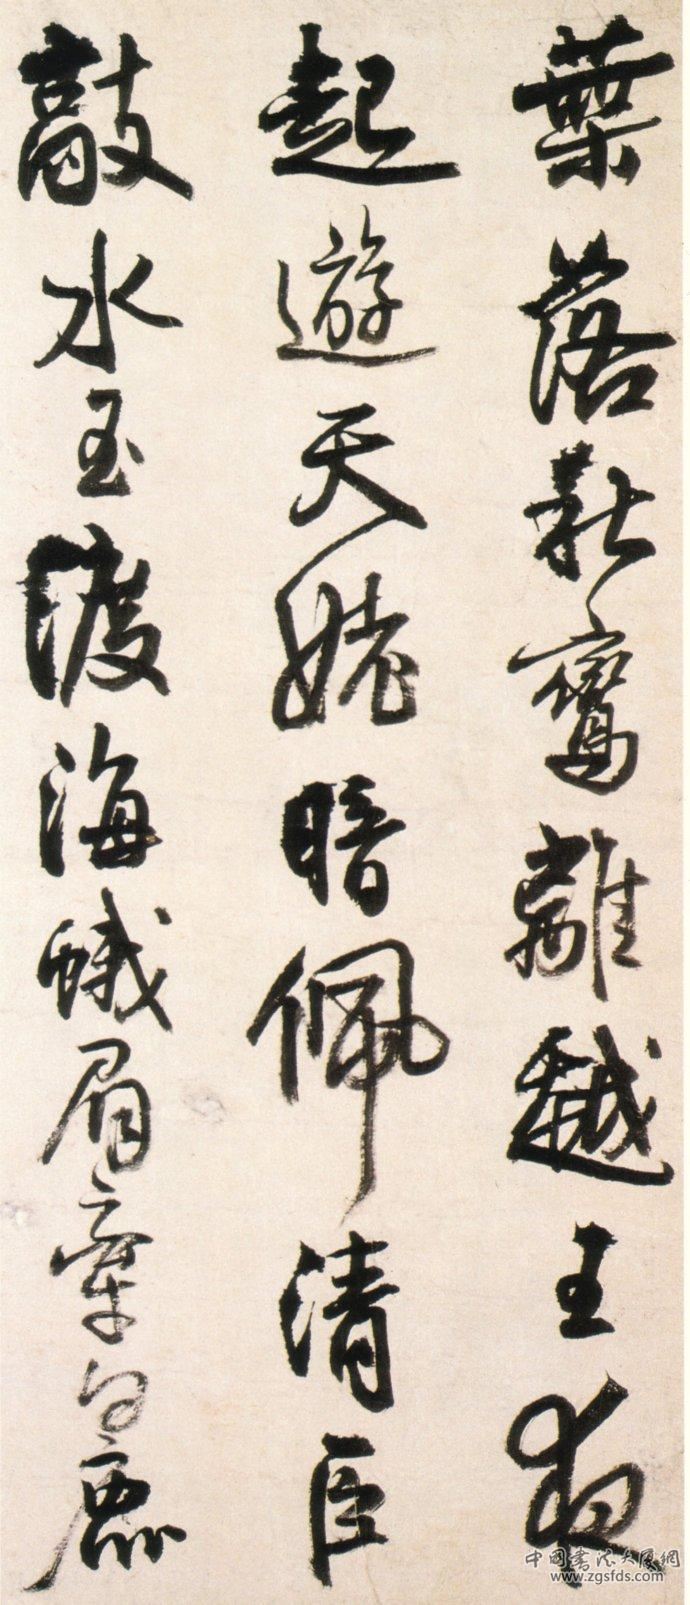 葉落秋鸞離越王夜
起遊天姥暗佩清臣
敲水玉渡海蛾眉牽白鹿
中國書法大厦網
www.zgsfds.com